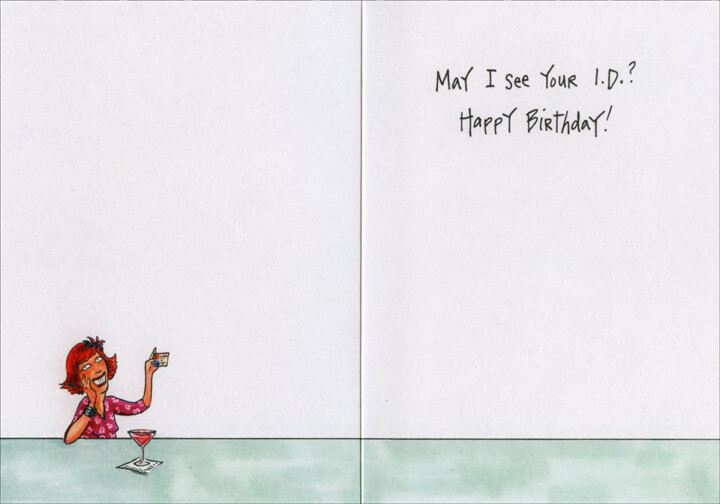 May I see Your I.D.?
Happy Birthday!